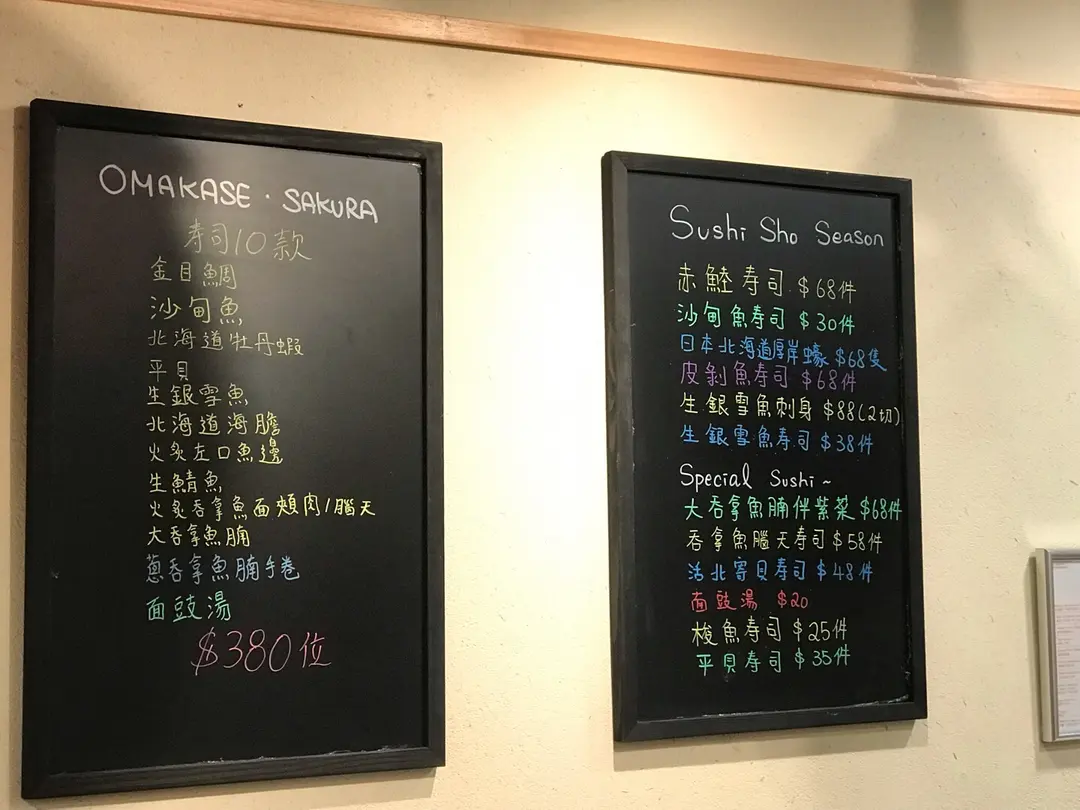 OMAKASE · SAKURA
寿司10款
金目鯛
沙甸魚
北海道牡丹蝦
平貝
生銀雪魚
北海道海膽
火炙左口魚邊
生鯖魚
火炙吞拿魚面頰肉/腦天
大吞拿魚腩
蔥吞拿魚腩手卷
面豉湯
$380位
Sushi Sho Season
赤鯥寿司 $68件
沙甸魚寿司 $30件
日本北海道厚岸蠔 $68隻
皮剝魚寿司 $68件
生銀雪魚刺身 $88(2切)
生銀雪魚寿司 $38件
Special Sushi ~
大吞拿魚腩伴紫菜 $68件
吞拿魚腦天寿司 $58件
活北寄貝寿司 $48件
面豉湯 $20
梭魚寿司 $25件
平貝寿司 $35件